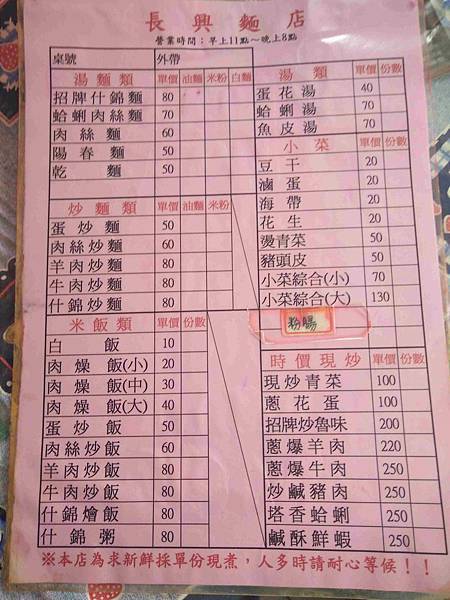 長興麵店
營業時間：早上11點～晚上8點
桌號 外帶
湯麵類 單價 油麵 米粉 白麵
招牌什錦麵 80
蛤蜊肉絲麵 70
肉絲麵 60
陽春麵 50
乾麵 50
炒麵類 單價 油麵 米粉
蛋炒麵 50
肉絲炒麵 60
羊肉炒麵 80
牛肉炒麵 80
什錦炒麵 80
米飯類 單價 份數
白飯 10
肉燥飯(小) 20
肉燥飯(中) 30
肉燥飯(大) 40
蛋炒飯 50
肉絲炒飯 60
羊肉炒飯 80
牛肉炒飯 80
什錦燴飯 80
什錦粥 80
湯類 單價 份數
蛋花湯 40
蛤蜊湯 70
魚皮湯 70
小菜 單價 份數
豆干 20
滷蛋 20
海帶 20
花生 20
燙青菜 50
豬頭皮 50
小菜綜合(小) 70
小菜綜合(大) 130
粉腸
時價現炒 單價 份數
現炒青菜 100
蔥花蛋 100
招牌炒魯味 200
蔥爆羊肉 220
蔥爆牛肉 250
炒鹹豬肉 250
塔香蛤蜊 250
鹹酥鮮蝦 250
※本店為求新鮮採單份現煮，人多時請耐心等候！！